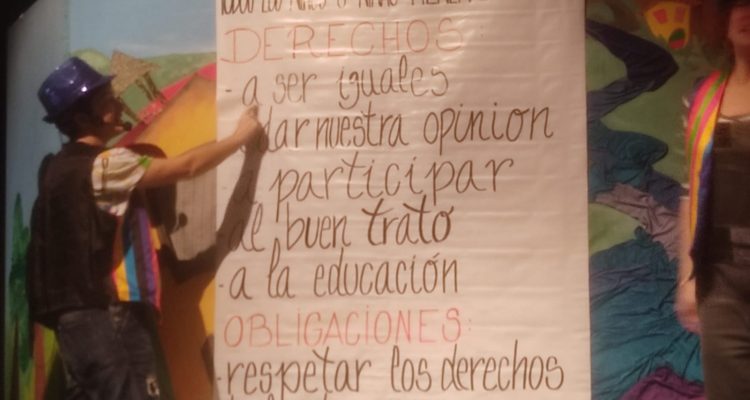 DERECHOS:
- a ser iguales
dar nuestra opinion
a participar
- al buen trato
- a la educación
OBLIGACIONES:
- respetar los derechos